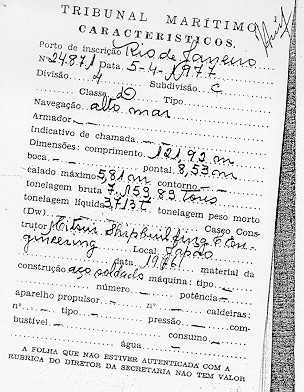 TRIBUNAL MARÍTIMO
CARACTERISTICOS.
Porto de inscrição Rio de Janeiro
Nº 24871 Data 5-4-1977
Divisão 4 Subdivisão C
Classe 2 Tipo
Navegação alto mar
Armador
Indicativo de chamada
Dimensões: comprimento 121,92 m
boca pontal 8,53 m
calado máximo 5,81 m contorno
tonelagem bruta 7.153,83 tons
tonelagem líquida 3713 T tonelagem peso morto
(Dw) Casco Cons
trutor Mitsui Shipbuilding & En-
gineering Local Japão
data 1976 material da
construção aço soldado máquina: tipo
número potência
aparelho propulsor nº caldeiras:
nº tipo pressão com-
bustível consumo
água
A FOLHA QUE NÃO ESTIVER AUTENTICADA COM A
RUBRICA DO DIRETOR DA SECRETARIA NÃO TEM VALOR